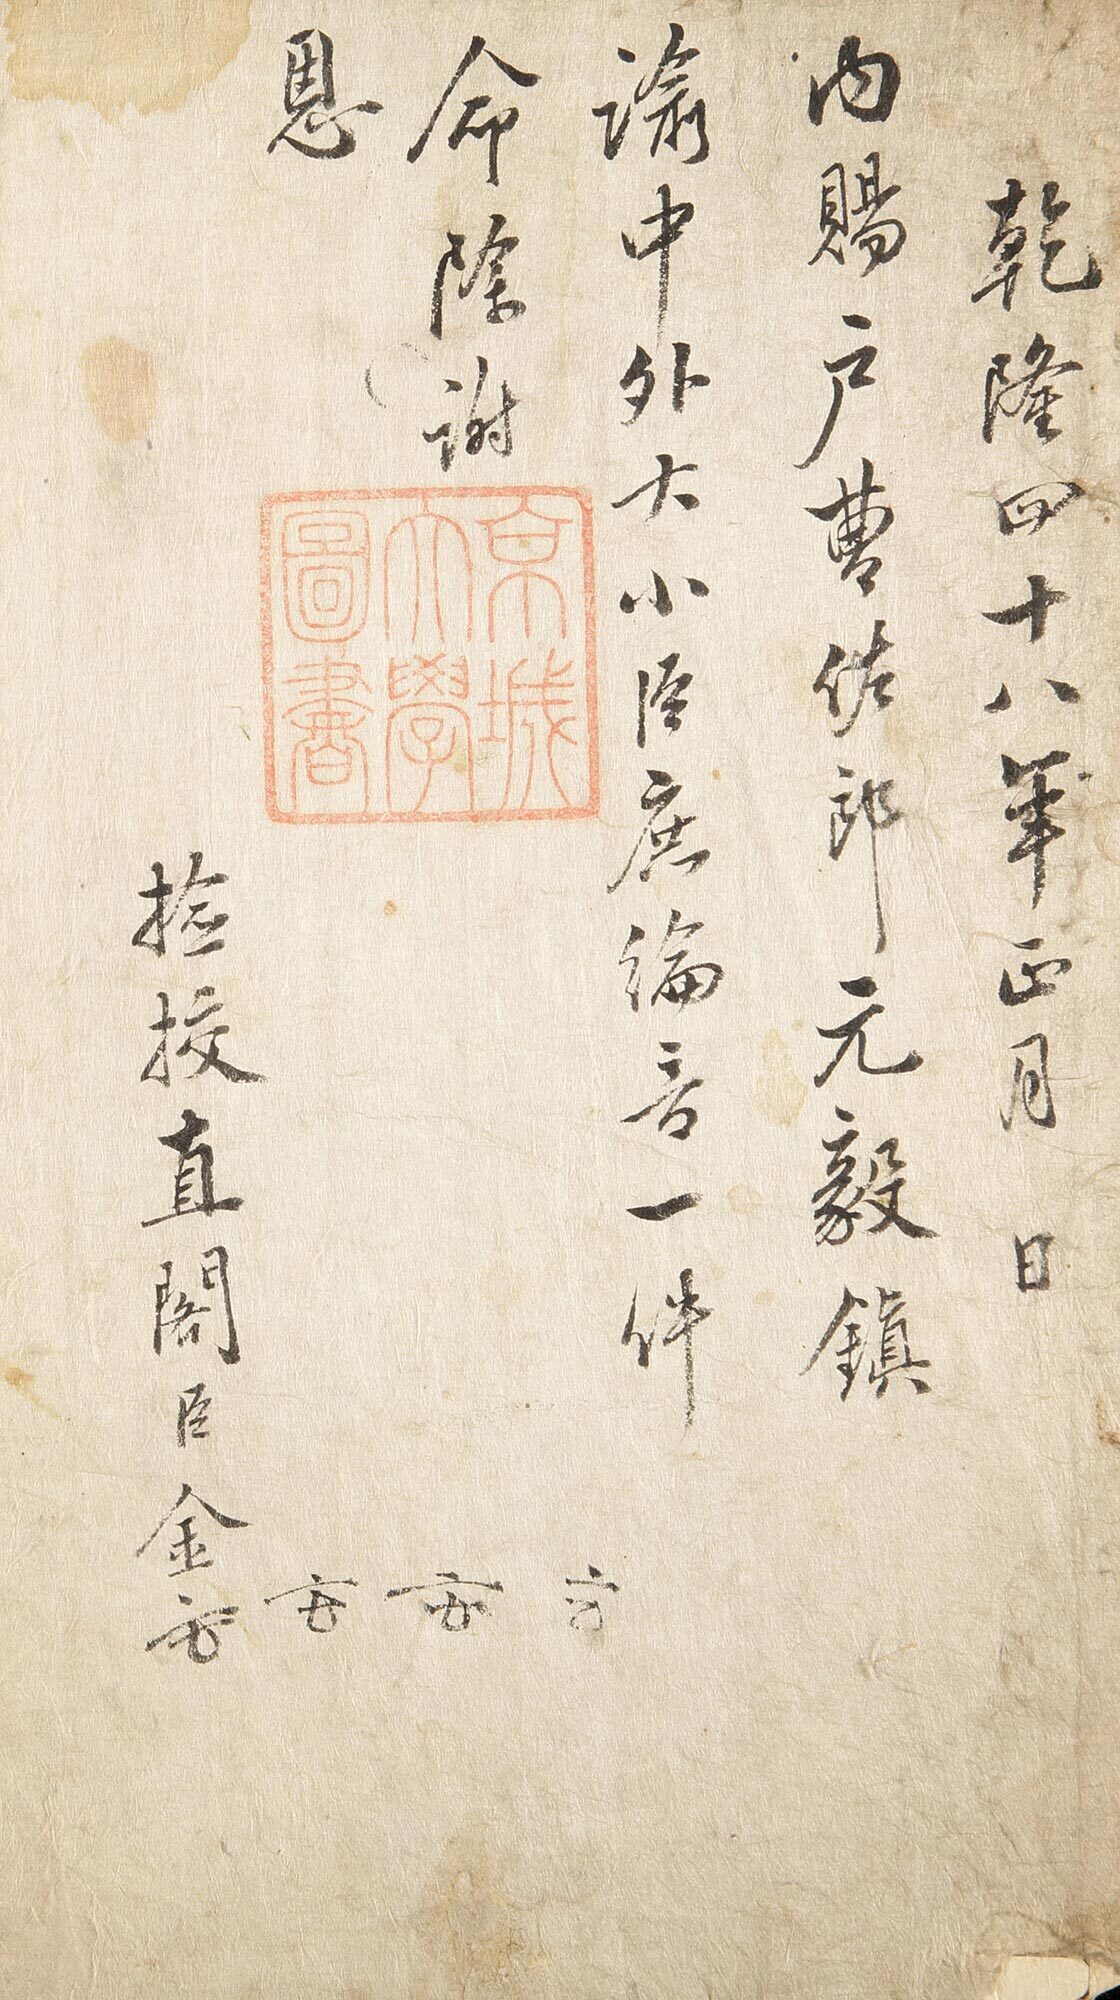 乾隆四十八年正月 日
內賜戶曹佐郎元毅鎭
諭中外大小臣庶綸音一件
命除謝
恩
檢校直閣臣金
京城
大學
圖書